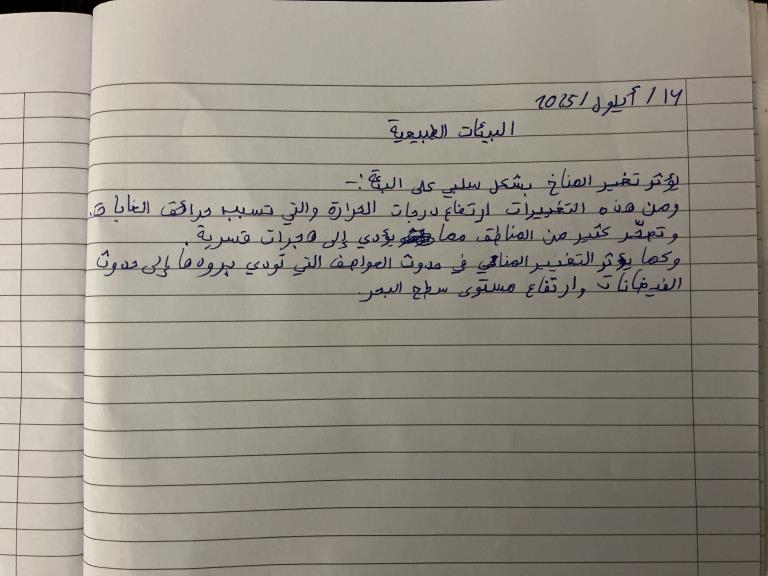 ١٤ / أيلول / 2025
البيئات الطبيعية
يؤثر تغير المناخ بشكل سلبي على البيئة :-
ومن هذه التغييرات ارتفاع درجات الحرارة والتي تسبب حرائق الغابات.
وتصحّر كثير من المناطق مما يؤدي إلى هجرات قسرية .
وكما يؤثر التغيير المناخي في حدوث العواصف التي تؤدي بدورها إلى حدوث
الفيضانات وارتفاع مستوى سطح البحر.